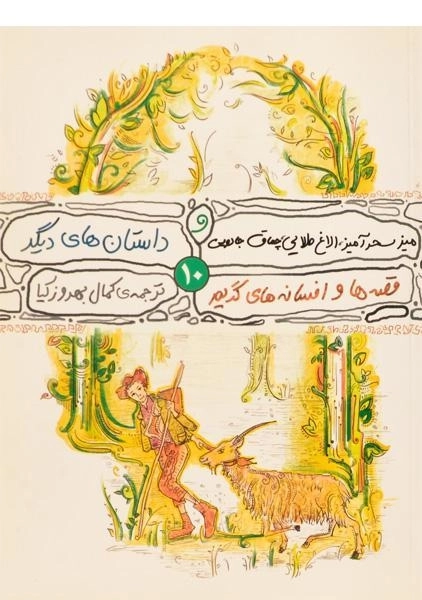 میز سحرآمیز، الاغ طلایی، چماق جادویی
و
داستان های دیگر
۱۰
قصه ها و افسانه های گریم
ترجمه ی کمال بهروزکیا